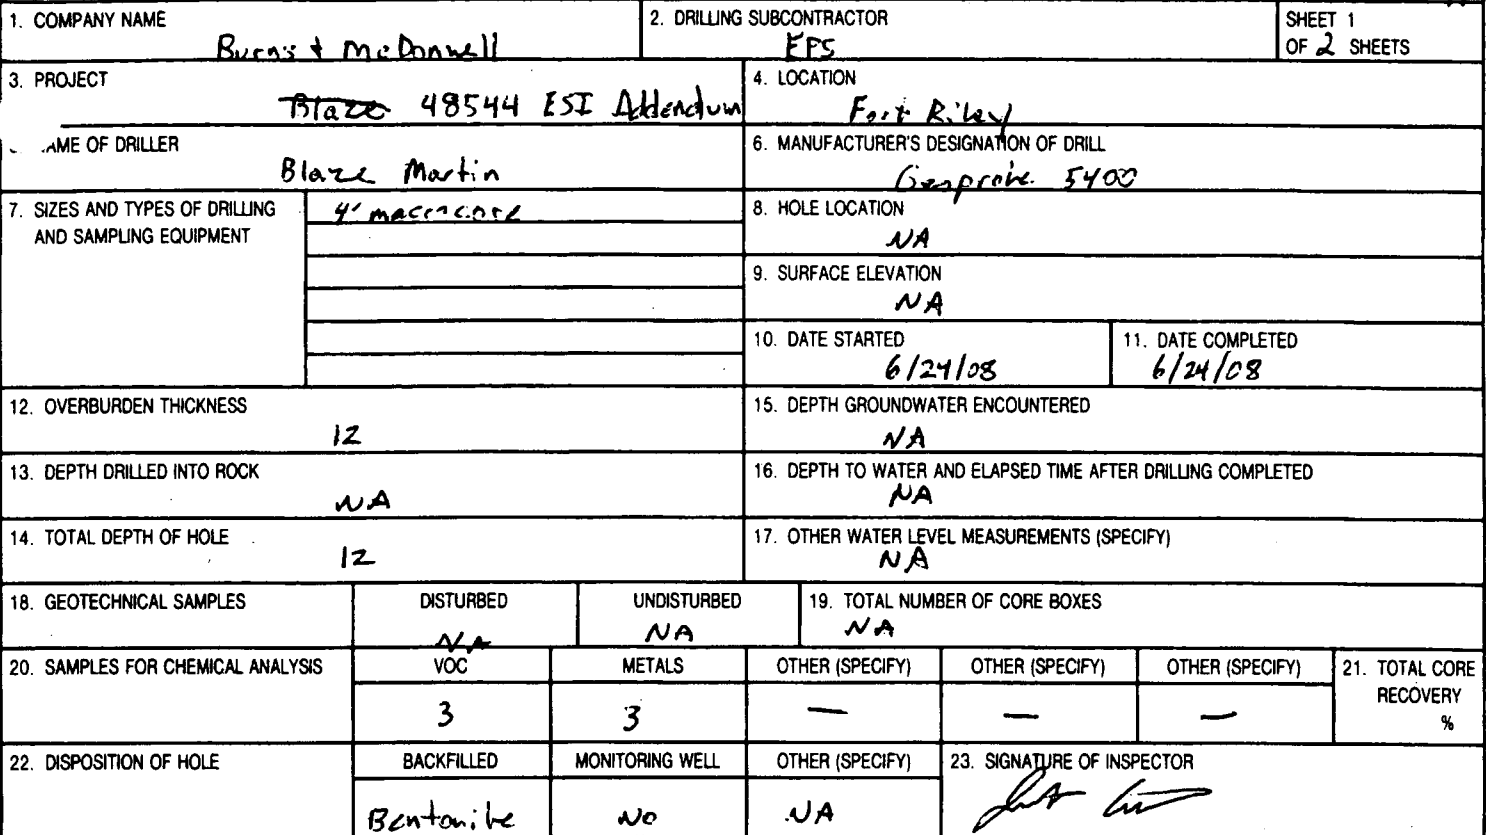 1. COMPANY NAME
Burns & McDonnell
2. DRILLING SUBCONTRACTOR
EPS
SHEET 1
OF 2 SHEETS
3. PROJECT
Blaze 48544 ESI Addendum
4. LOCATION
Fort Riley
AME OF DRILLER
Blaze Martin
6. MANUFACTURER'S DESIGNATION OF DRILL
Geoprobe 5400
7. SIZES AND TYPES OF DRILLING
AND SAMPLING EQUIPMENT
4' macrocore
8. HOLE LOCATION
NA
9. SURFACE ELEVATION
NA
10. DATE STARTED
6/24/08
11. DATE COMPLETED
6/24/08
12. OVERBURDEN THICKNESS
12
15. DEPTH GROUNDWATER ENCOUNTERED
NA
13. DEPTH DRILLED INTO ROCK
NA
16. DEPTH TO WATER AND ELAPSED TIME AFTER DRILLING COMPLETED
NA
14. TOTAL DEPTH OF HOLE
12
17. OTHER WATER LEVEL MEASUREMENTS (SPECIFY)
NA
18. GEOTECHNICAL SAMPLES
DISTURBED
NA
UNDISTURBED
NA
19. TOTAL NUMBER OF CORE BOXES
NA
20. SAMPLES FOR CHEMICAL ANALYSIS
VOC
3
METALS
3
OTHER (SPECIFY)
—
OTHER (SPECIFY)
—
OTHER (SPECIFY)
—
21. TOTAL CORE
RECOVERY
%
22. DISPOSITION OF HOLE
BACKFILLED
Bentonite
MONITORING WELL
No
OTHER (SPECIFY)
NA
23. SIGNATURE OF INSPECTOR